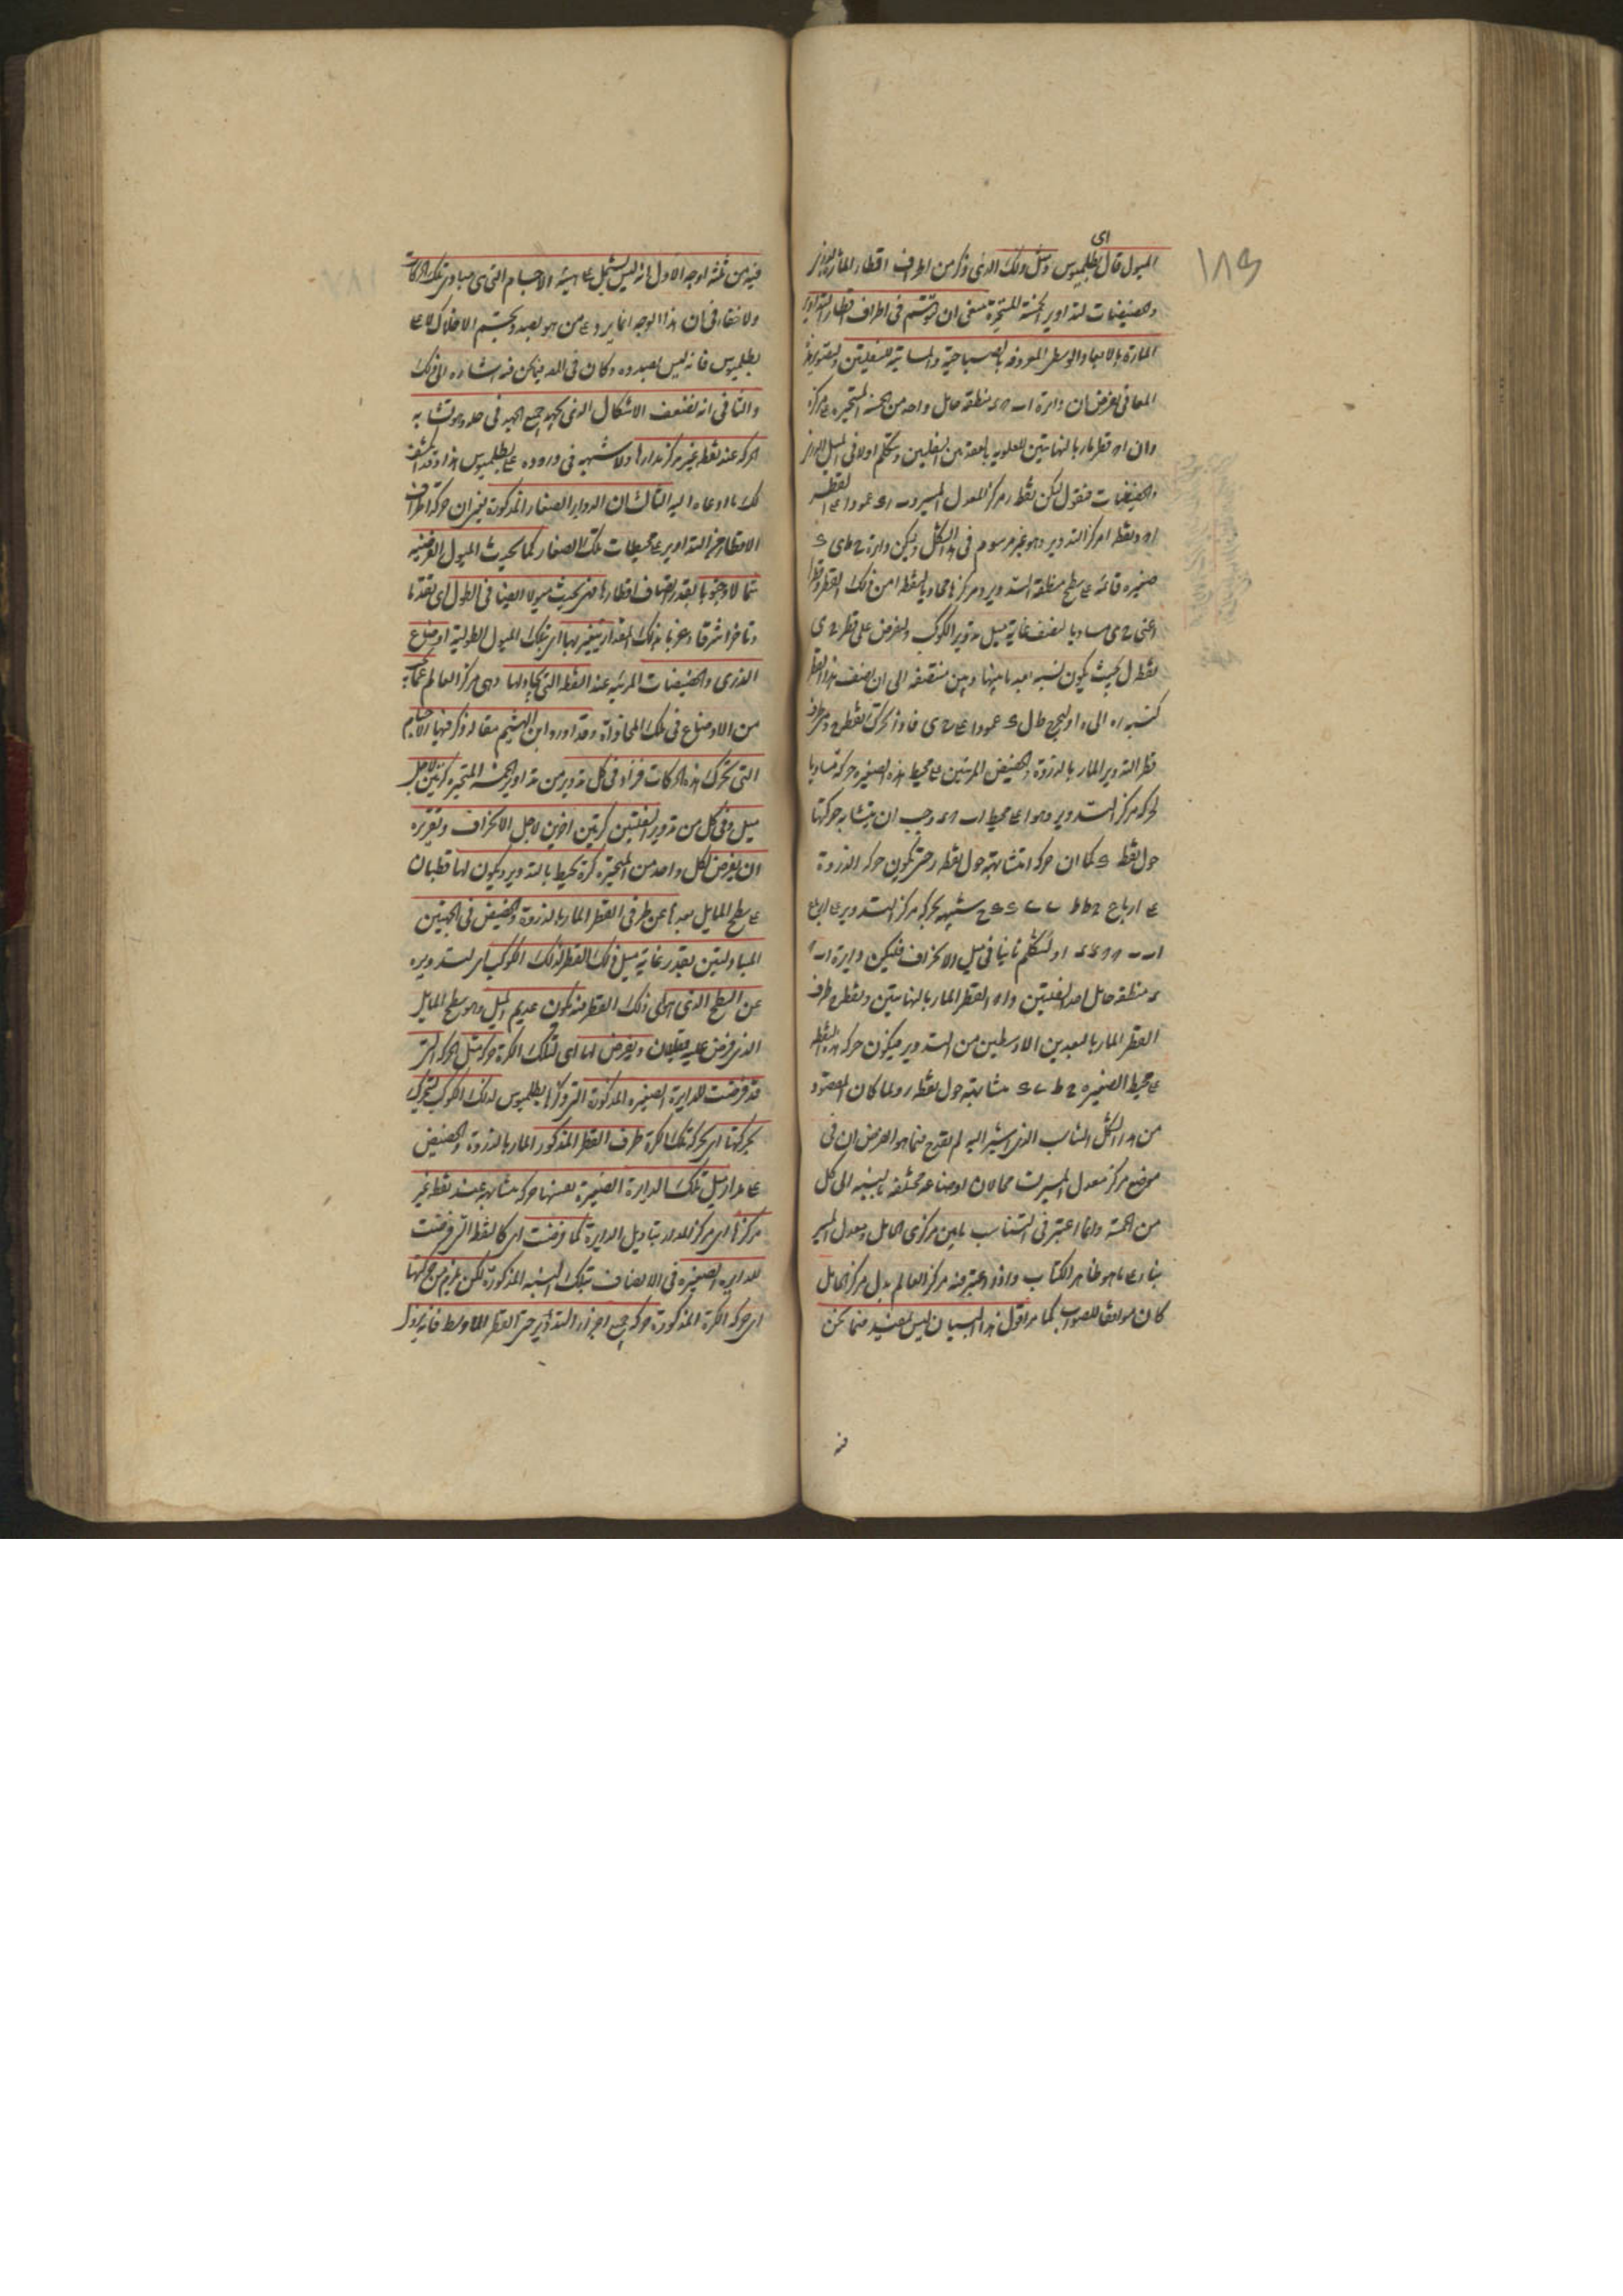 ١٨٩
اى
الميول قال بطلميوس ومثل ذلك الذى ذكر من اطراف اقطار المارة بالذرى
والحضيضات لتداوير الخمسة المتحيرة ينبغى ان يتوهم فى اطراف اقطار التداوير
المارة بالابعاد الوسطى المعروفة بالصباحية والمسائية للسفليين ولتقرير هذه
المعانى نفرض ان دائرة ا ب ه د منطقة حامل واحد من الخمسة المتحيرة على مركز
وان ا ه قطر مار بالنهايتين للعلوية بالعقدتين للسفليين ونتكلم اولا فى الميل الذرى
والحضيضات فنقول لتكن نقطة ر مركز المعدل المسير و ب ر د عمودا على القطر
ا ه ونقطة ا مركز التدوير وهو غير مرسوم فى هذا الشكل وليكن دائرة ح ط ى ك
صغيرة قائمة على سطح منطقة التدوير ومركزها محاديا لنقطة ا من ذلك القطر وقطرها
اعنى ح ى مساويا لضعف غاية ميل تدوير الكوكب ولنفرض على قطر ح ى
نقطة ل بحيث يكون نسبة بعد ما بينها وبين منتصفه الى ان نصف هذا القطر
كنسبة ر ه الى ه ا وليخرج ط ل ك عمودا على ح ى فاذا تحركت نقطة ح وهى طرف
قطر التدوير المار بالذروة والحضيض المرئيين على محيط هذه الصغيرة حركة مساوية
لحركة مركز التدوير وهو ا على محيط ا ب ه د وجب ان يتشابه حركتها
حول نقطة ل كما ان حركة ا متشابهة حول نقطة ر حتى يكون حركة الذروة
على ارباع ح ط ط ى ى ك ك ح شبيهة بحركة مركز التدوير على ارباع
ا ب ب ه ه د د ا ولنتكلم ثانيا فى ميل الانحراف فليكن دائرة ا ب ه
د منطقة حامل احد السفليين و ا ه القطر المار بالنهايتين ونقطة ح طرف
القطر المار بالبعدين الاوسطين من التدوير فيكون حركة هذه النقطة
على محيط الصغيرة ح ط ى ك متشابهة حول نقطة ل ولما كان المقصود
من هذا الشكل المناسب الذى اشير اليه لم يقدح فيما هو الغرض ان فى
موضع مركز معدل المسير فيه محالان اوضاعه مختلفة بالنسبة الى كل
من الخمسة وانما اعتبر فى التناسب بين مركزى الحامل ومعدل المسير
بناء على ما هو ظاهر الكتاب واذا اعتبر فيه مركز العالم بدل مركز الحامل
كان موافقا للصواب كما مر اقول هذا البيان ليس بمفيد فيما نحن
فيه
فيه من ثلثة اوجه الاول انه ليس يشتمل على هيئة الاجسام التى هى مبادى تلك الحركات
ولا خفاء فى ان هذا الوجه انما يرد على من هو بصدد تجسيم الافلاك لا على
بطلميوس فانه ليس بصدده وكان فى قوله فيما نحن فيه اشارة الى ذلك
والثانى انه يضعف الاشكال الذى يجتهد جميع الجهد فى حله وهو تشابه
الحركة عند نقطة غير مركز مدارها ولا شبهة فى وروده على بطلميوس هذا وقد انكشف
لك ما ادعاه اليه الثالث ان الدوائر الصغار المذكورة يغير ان حركة اطراف
الاقطار فى التداوير على محيطات تلك الصغار كما يحدث الميول العرضية
شمالا وجنوبا بقدر انصاف اقطارها فهى يحدث ميولا ايضا فى الطول اى تقدما
وتاخرا شرقا وغربا بذلك المقدار يتغير بها اى بتلك الميول الطولية اوضاع
الذرى والحضيضات المرئية عند النقطة التى تحاذيها وهى مركز العالم عما
من الاوضاع فى تلك المحاذاة وقد اورد ابن الهيثم مقالة ذكر فيها الاجسام
التى تحرك هذه الحركات فزاد فى كل تدوير من تداوير الخمسة المتحيرة كرتين لاجل
ميل وفى كل من تدوير السفليين كرتين اخريين لاجل الانحراف وتقريره
ان يفرض لكل واحد من المتحيرة كرة تحيط بالتدوير ويكون لها قطبان
على سطح المايل بعدهما عن طرفى القطر المار بالذروة والحضيض فى الجهتين
المتبادلتين بقدر غاية ميل ذلك القطر لذلك الكوكب اى لتدويره
عن السطح الذى هو ذلك القطر فيه يكون عديم الميل وهو سطح المايل
الذى فرض عليه قطبان ويفرض لها اى لتلك الكرة حركة مثل الحركة التى
قد فرضت للدائرة الصغيرة المذكورة التى ذكرها بطلميوس لذلك الكوكب ليتحرك
بحركتها اى بحركة تلك الكرة طرف القطر المذكور المار بالذروة والحضيض
على مدار مثل تلك الدائرة الصغيرة بعينها حركة متشابهة عند نقطة غير
مركزها اى مركز المدار بتأويل الدايرة كما فرضت اى كالنقطة التى فرضت
للدايرة الصغيرة فى الانصاف بتلك النسبة المذكورة لكن يلزم من حركتها
اى حركة الكرة المذكورة حركة جميع اجزاء التدوير حتى القطر الاوسط فانه يزول